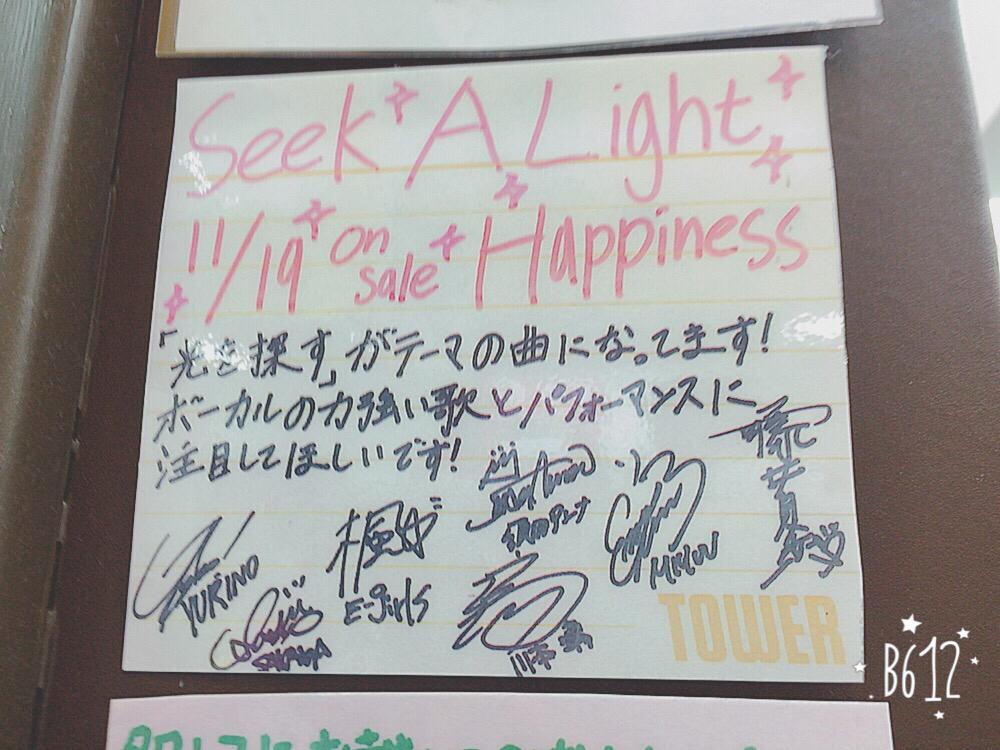 Seek A Light
11/19 on sale Happiness
「光を探す」がテーマの曲になってます!
ボーカルの力強い歌とパフォーマンスに
注目してほしいです!
YURINO
SAYAKA
楓
E-girls
須田アンナ
川本璃
MIYUU
藤井夏恋
TOWER
B612